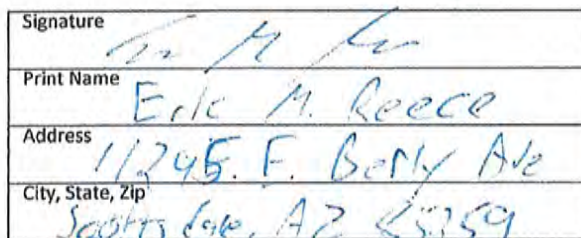 Signature
Print Name
Eric M. Reece
Address
11245. E. Ave
City, State, Zip
Scottsdale, AZ 85259